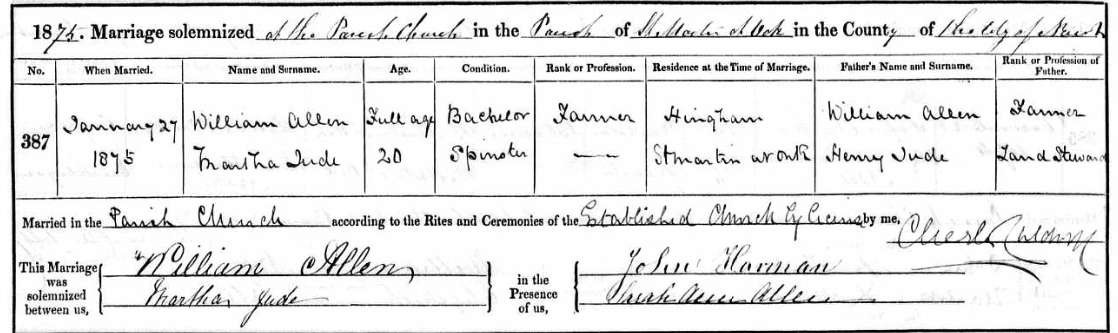 1875. Marriage solemnized at the Parish Church in the Parish of St Martin at Oak in the County of the City of
No. When Married. Name and Surname. Age. Condition. Rank or Profession. Residence at the Time of Marriage. Father's Name and Surname. Rank or Profession of Father.
387 January 27 William Allen Full age Bachelor Farmer Hingham William Allen Farmer
1875 Martha Jude 20 Spinster — St Martin at Oak Henry Jude Land Steward
Married in the Parish Church according to the Rites and Ceremonies of the Established Church by licence by me,
This Marriage was solemnized between us, William Allen in the Presence of us, John Harman
Martha Jude Sarah Ann Allen